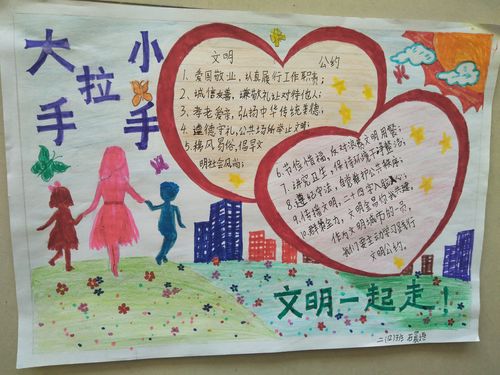 小
大拉手
手
文明 公约
1. 爱国敬业，认真履行工作职责；
2. 诚信友善，谦敬礼让对待他人；
3. 孝老爱亲，弘扬中华传统美德；
4. 遵德守礼，公共场所举止文明；
5. 移风易俗，倡导文
明社会风尚；
6. 节俭惜福，反对浪费文明用餐；
7. 讲究卫生，保持环境干净整洁；
8. 遵纪守法，自觉维护公共秩序；
9. 传播文明，二十四字入脑入心；
10. 群策全力，文明全品你我共建。
作为文明城市的一员，
我们要主动学习践行
文明公约。
文明一起走！
二(12)班